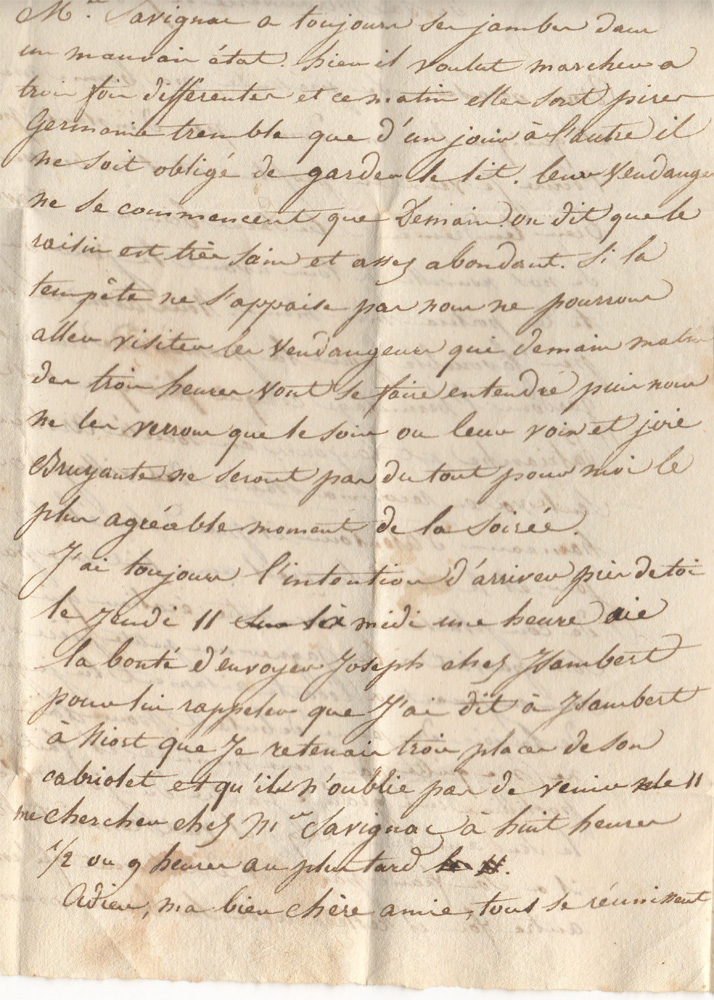 M.r Savignac a toujours ses jambes dans
un mauvais état. hier il voulut marcher a
trois fois differentes et ce matin elles sont pires
Germanie tremble que d'un jour à l'autre il
ne soit obligé de garder le lit. leurs Vendanges
ne se commencent que Demain on dit que le
raisin est très sain et assez abondant. Si la
tempête ne s'appaise pas nous ne pourrons
aller visiter les Vendangeurs qui demain matin
des trois heures vont se faire entendre puis nous
ne les verrons que le soir ou leurs voix et joie
Bruyante ne seront pas du tout pour moi le
plus agréable moment de la soirée.
J'ai toujours l'intention d'arriver près de toi
le Jeudi 11 midi une heure aie
la bonté d'envoyer Joseph chez Isambert
pour lui rappeler que J'ai dit à Isambert
à Niort que Je retenais trois places de son
cabriolet et qu'il n'oublie pas de venir le 11
me chercher chez M.r Savignac à huit heures
1/2 ou 9 heures au plus tard
Adieu, ma bien chère amie, tous se réunissent